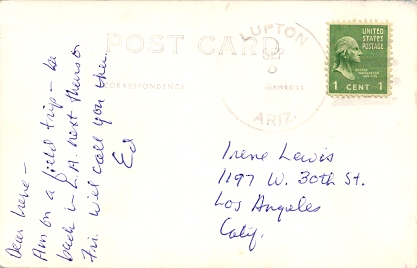 POST CARD
CORRESPONDENCE
ADDRESS
LUPTON
SEP
ARIZ.
UNITED
STATES
POSTAGE
1 CENT 1
Dear Irene –
Am on a field trip – be
back in L.A. next Thurs or
Fri. Will call you then
Ed
Irene Lewis
1197 W. 30th St.
Los Angeles
Calif.